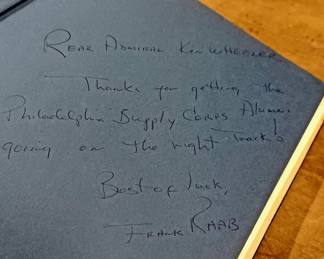 Rear Admiral Ken Wheeler
Thanks for getting the
Philadelphia Supply Corps Alumni
going on the right track!
Best of luck,
Frank Raab